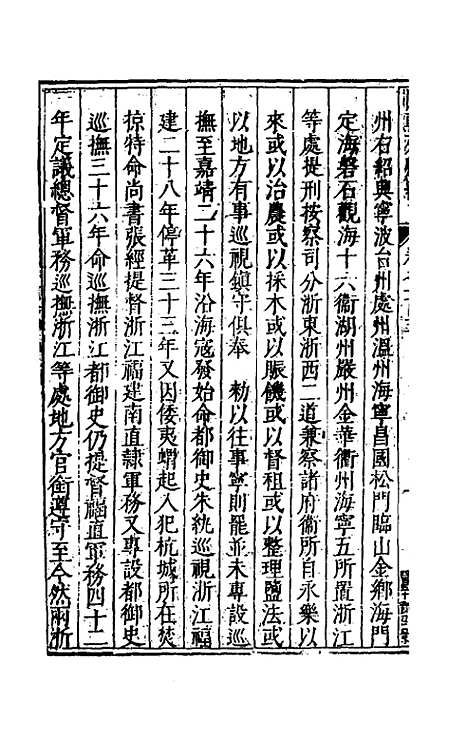 州右紹興寧波台州處州溫州海寧昌國松門臨山金鄉海門
定海磐石觀海十六衞湖州嚴州金華衢州海寧五所置浙江
等處提刑按察司分浙東浙西二道兼察諸府衞所自永樂以
來或以治農或以採木或以賑饑或以督租或以整理鹽法或
以地方有事巡視鎮守俱奉 勅以往事寧則罷並未專設巡
撫至嘉靖二十六年沿海寇發始命都御史朱紈巡視浙江福
建二十八年停革三十三年又因倭夷蝟起入犯杭城所在焚
掠特命尚書張經提督浙江福建南直隷軍務又專設都御史
巡撫三十六年命巡撫浙江都御史仍提督福直軍務四十二
年定議總督軍務巡撫浙江等處地方官銜遵守至今然兩浙